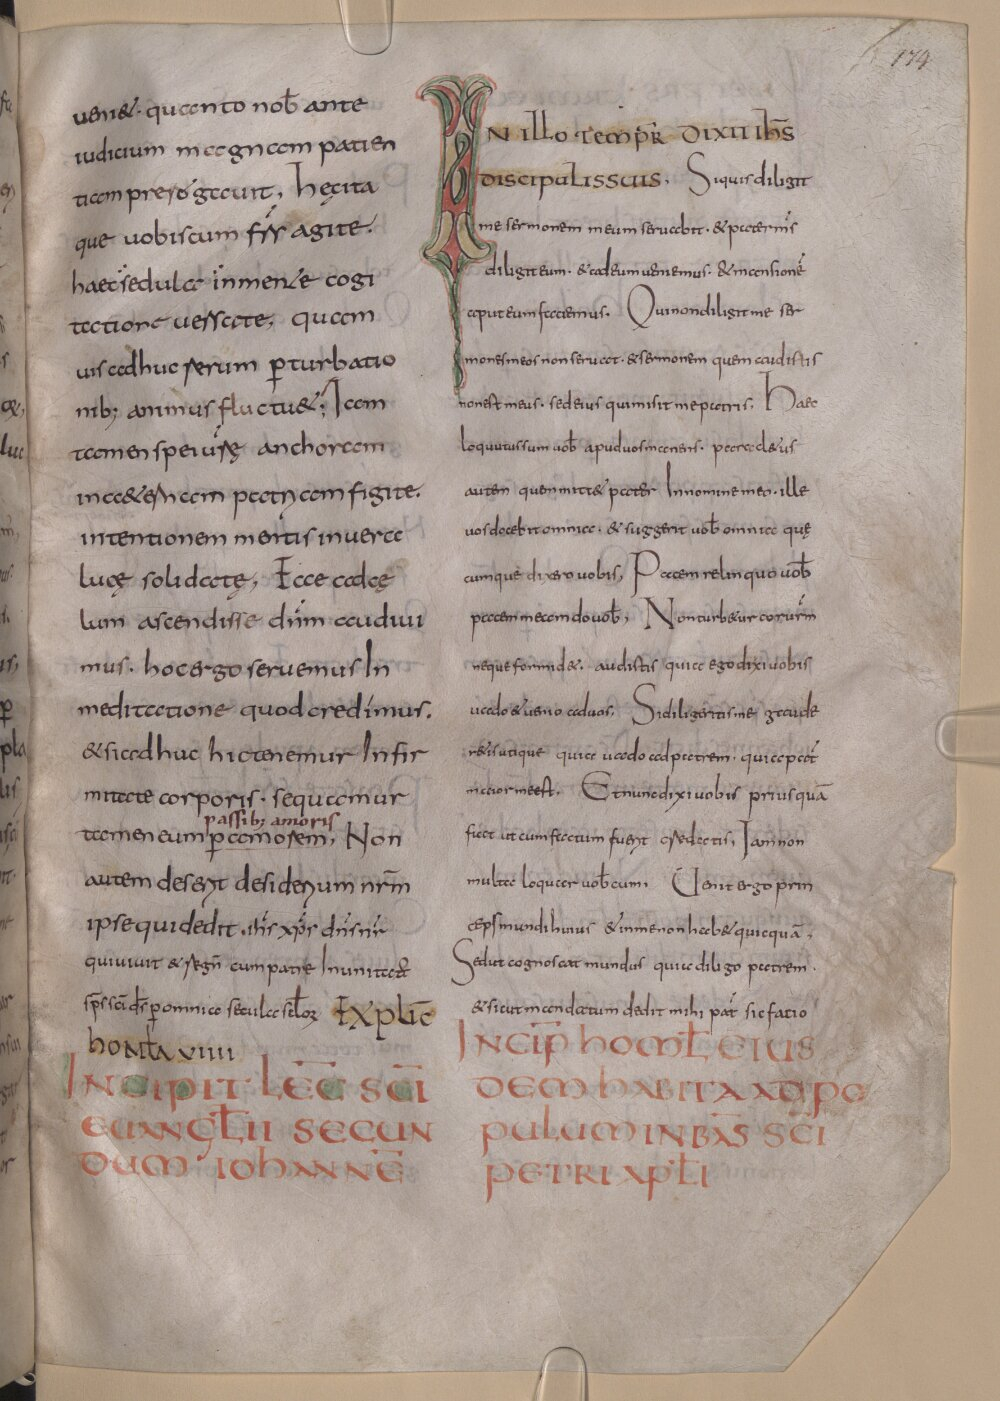 174
uenit& · quanto nob̄ ante
iudicium magnam patien
tiam prerogauit, Hęc ita
que uobiscum frs̄ agite.
haec sedula in mente cogi
tatione uersate, quam
uis adhuc rerum p̱turbatio
nib; animus fluctu&; Iam
tamen spei urę anchoram
in a&ernam patriam figite.
intentionem mentis in uera
lucę solidate, Ecce ad cę
lum ascendisse dn̄m audiui
mus. hoc ergo seruemus In
meditatione quod credimus.
& si adhuc hic tenemur Infir
mitate corporis · sequamur
passib; amoris
tamen eum p̱ amorem, Non
autem deserit desiderium nr̄m
ipse qui dedit . ih̄s xp̄s dn̄s nr̄
qui uiuit & regn̄ cum patre In unitate
sp̄s sc̄i ds̄ p̱ omnia secula sc̄lorꝝ EXPLIC̄
homī̄a xviiii
INCIPIT LEC̄ SC̄I
EUANGL̄II SECUN
DUM · IOHANNĒ
IN illo tempr̄ DIXIT ih̄s
discipulis suis. Siquis diligit
me sermonem meum seruabit · & pater m̄s
diligit eum · & ad eum ueniemus · & mansionē
aput eum faciemus. Qui non diligit me ser
mones meos non seruat · & sermonem quem audistis
non est meus · sed eius qui misit me patris. Haec
loquutus sum uob̄ apud uos manens · paracletus
autem quem mitt& pater In nomine meo · ille
uos docebit omnia · & suggerit uob̄ omnia quę
cumque dixero uobis, Pacem relinquo uob̄
pacem meam do uob̄, Non turb&ur cor ur̄m
neque formid&. audistis quia ego dixi uobis
uado & uenio ad uos, Si diligeritis me gaude
r&is utique quia uado ad patrem · quia pat̄
maior me est. Et nunc dixi uobis prius quā
fiat ut cum factum fuerit credatis, Iam non
multa loquar uob̄cum Uenit ergo prin
ceps mundi huius & in me non hab& quicquā,
Sed ut cognoscat mundus quia diligo patrem ·
& sicut mandatum dedit mihi pat̄ sic facio
INCIP̄ HOML̄ EIUS
DEM HABITA AD PO
PULUM IN BAS̄ SC̄I
PETRI APL̄I